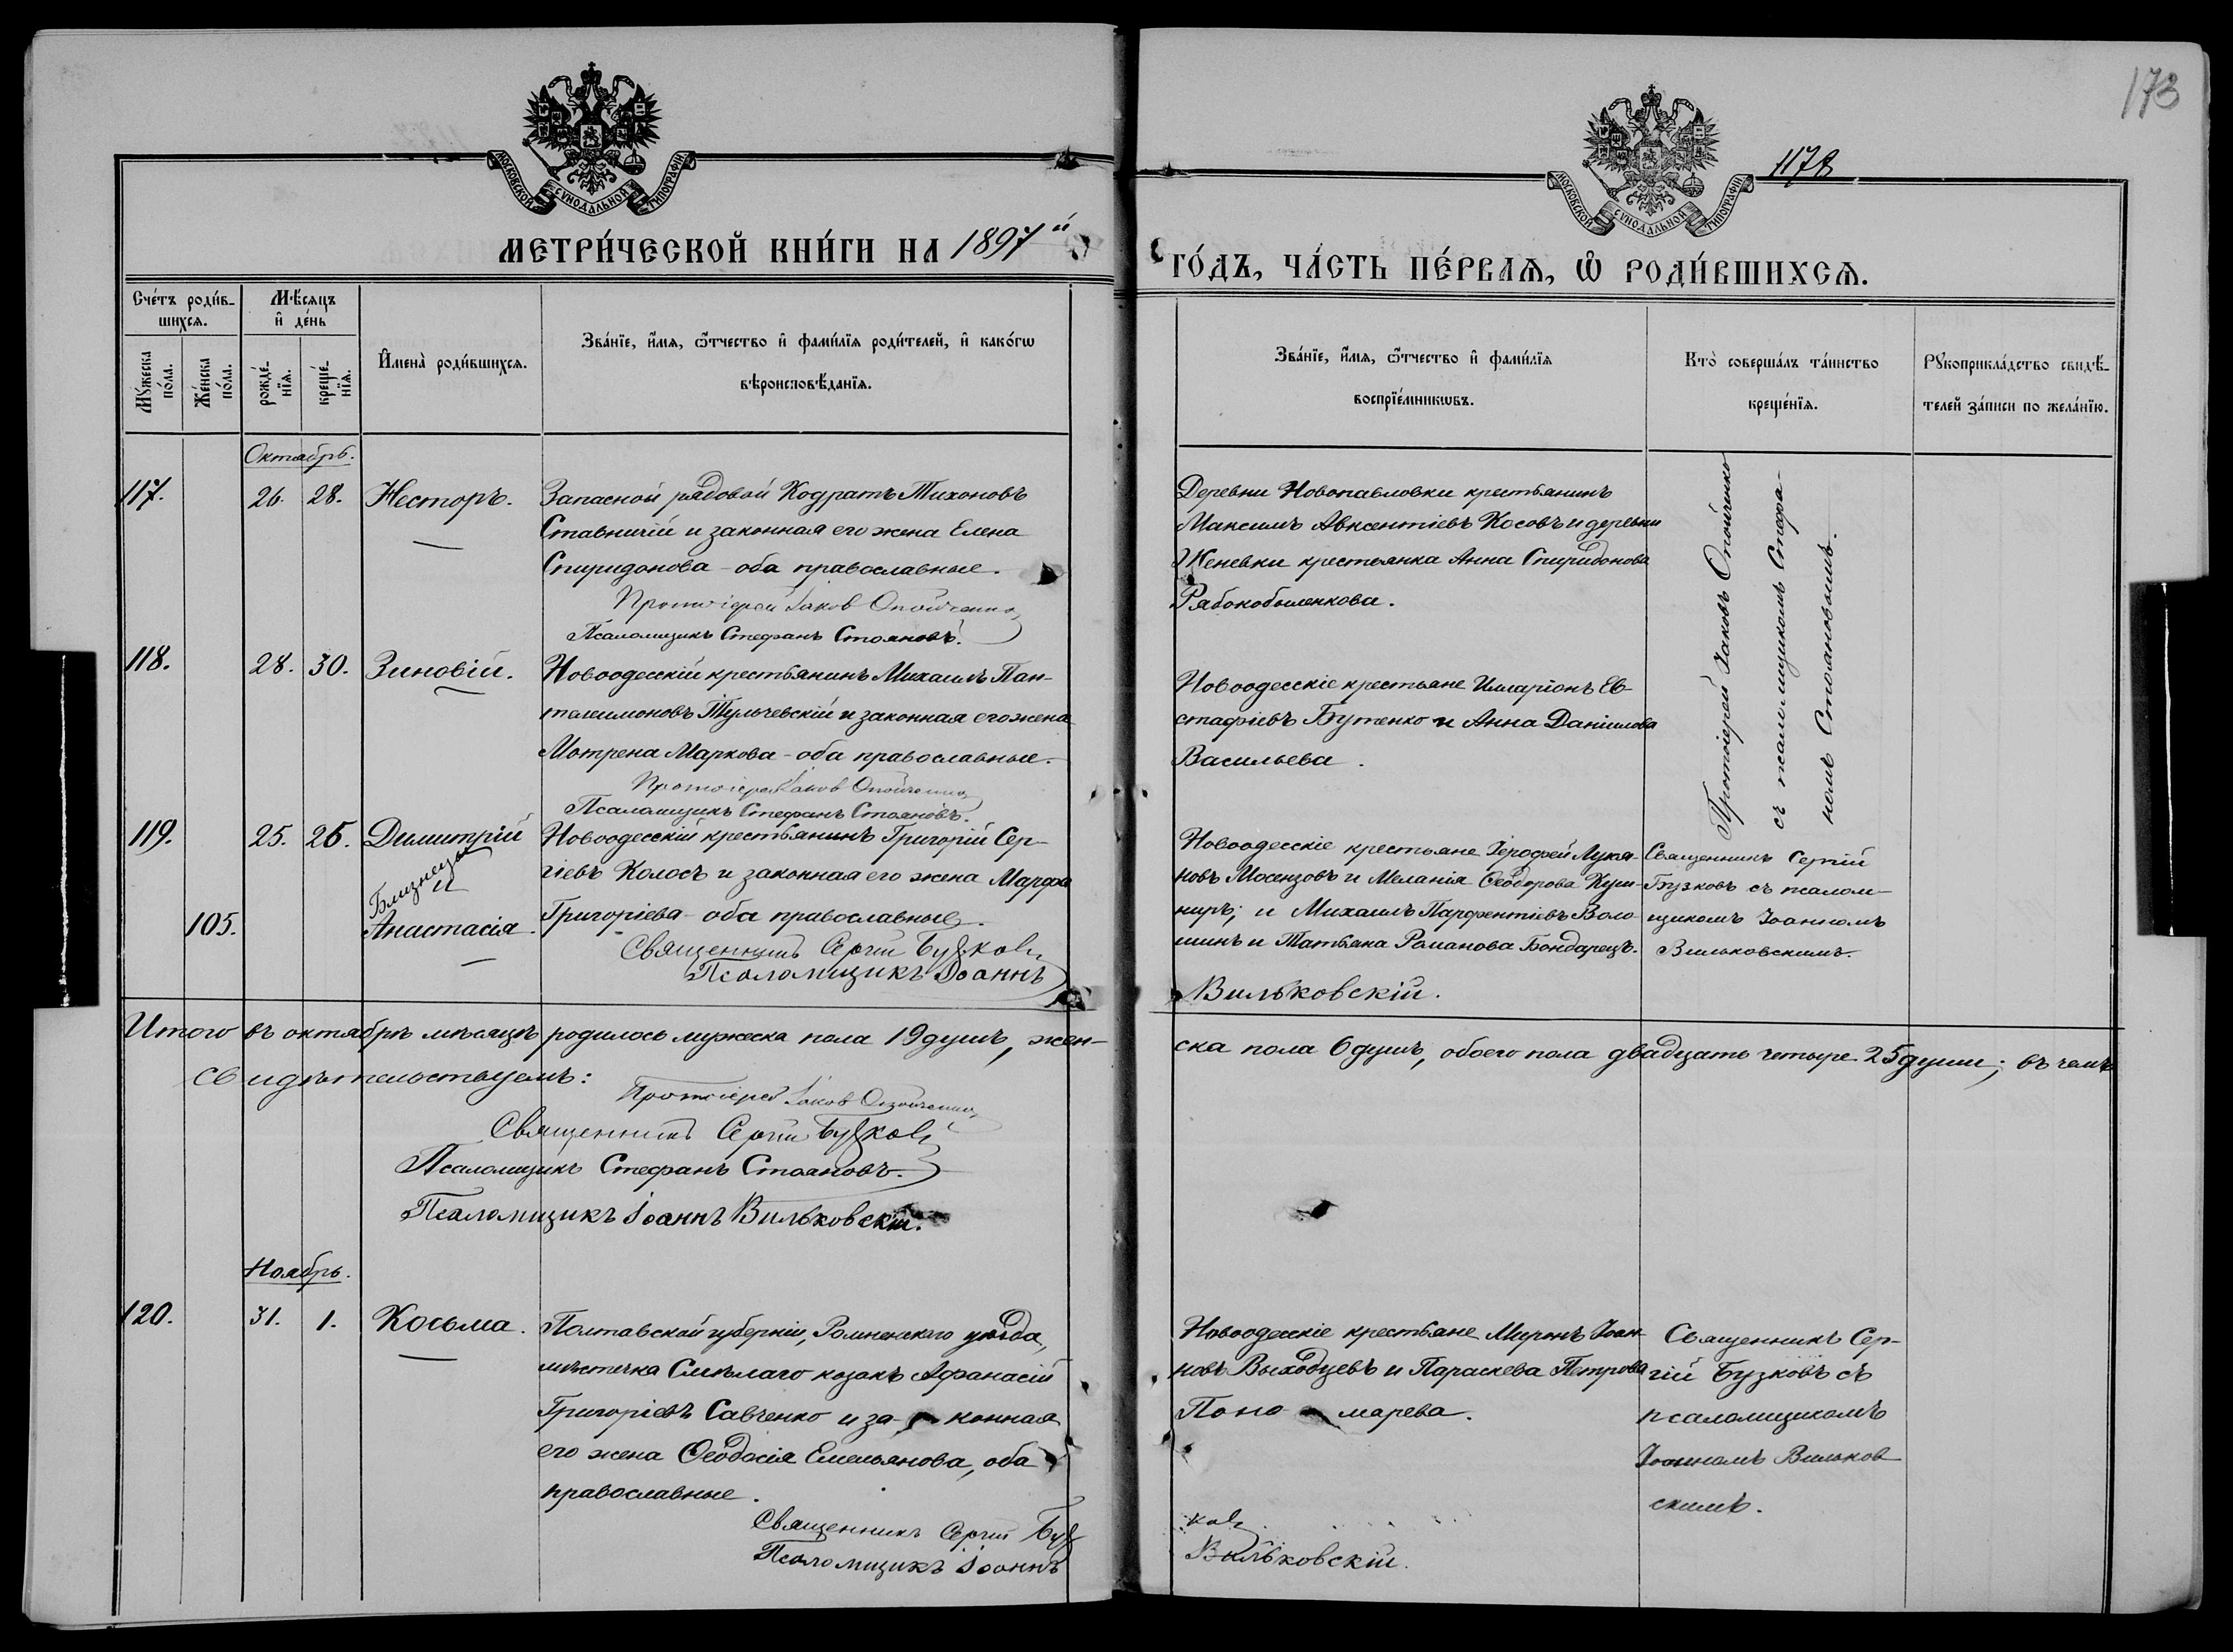 173
1178
МОСКОВСКОЙ СѴНОДАЛЬНОЙ ТИПОГРАФІИ
МОСКОВСКОЙ СѴНОДАЛЬНОЙ ТИПОГРАФІИ
МЕТРИ́ЧЕСКОЙ КНИ́ГИ НА 1897й
ГО́ДЪ, ЧА́СТЬ ПЕ́РВАѦ, Ѽ РОДИ́ВШИХСѦ.
Сче́тъ роди́в-
шихсѧ.
Му́жеска по́ла.
Же́нска по́ла.
Мѣ́сяцъ
и҆ де́нь
рожде́-
нїѧ.
креще́-
нїѧ.
И҆мена̀ роди́вшихсѧ.
Зва́нїе, и҆́мѧ, ѻ҆́тчество и҆ фами́лїѧ роди́телей, и҆ како́гѡ
вѣроисповѣ́данїѧ.
Зва́нїе, и҆́мѧ, ѻ҆́тчество и҆ фами́лїѧ
воспрїе́мникѡвъ.
Кто̀ соверша́лъ та́инство
креще́нїѧ.
Рꙋкоприкла́дство свидѣ́-
телей за́писи по жела́нїю.
Октябрь.
117. 26. 28. Несторъ.
Запасной рядовой Кодратъ Тихоновъ
Ставничій и законная его жена Елена
Спиридонова – оба православные.
Протоіерей Іаков Опойченко
Псаломщикъ Стефанъ Стояновъ.
Деревни Новопавловки крестьянинъ
Максимъ Авксентіевъ Косовъ и деревни
Женевки крестьянка Анна Спиридонова
Рябокобыленкова.
Протоіерей Іаковъ Опойченко
съ псаломщикомъ Стефа-
номъ Стояновымъ.
118. 28. 30. Зиновій.
Новоодесскій крестьянинъ Михаилъ Пан-
телеимоновъ Тульчевскій и законная его жена
Мотрена Маркова – оба православные.
Протоіерей Іаков Опойченко
Псаломщикъ Стефанъ Стояновъ.
Новоодесскіе крестьяне Иларіонъ Ев-
стафіевъ Бутенко и Анна Даніилова
Васильева.
119. 25. 26. Димитрій
Близнецы
и
105. Анастасія.
Новоодесскій крестьянинъ Григорій Сер-
гіевъ Колосъ и законная его жена Марфа
Григоріева – оба православные.
Священникъ Сергій Бузковъ
Псаломщикъ Іоаннъ
Вильковскій.
Новоодесскіе крестьяне Іерофей Лукья-
новъ Мосензовъ и Меланія Ѳеодорова Куш-
ниръ; и Михаилъ Парфентіевъ Воло-
шинъ и Татьяна Романова Бондарецъ.
Священникъ Сергій
Бузковъ съ псалом-
щикомъ Іоанномъ
Вильковскимъ.
Итого въ октябрѣ мѣсяцѣ родилось мужеска пола 19 душъ, жен-
ска пола 6 душъ, обоего пола двадцать четыре 25 души; въ чемъ
свидѣтельствуемъ:
Протоіерей Іаков Опойченко
Священникъ Сергій Бузковъ
Псаломщикъ Стефанъ Стояновъ.
Псаломщикъ Іоаннъ Вильковскій.
Ноябрь.
120. 31. 1. Косьма.
Полтавской губерніи, Роменскаго уѣзда,
мѣстечка Смѣлаго козакъ Афанасій
Григоріевъ Савченко и за- конная
его жена Ѳеодосія Емельянова, оба
православные.
Священникъ Сергій Буз
ковъ
Псаломщикъ Іоаннъ
Вильковскій.
Новоодесскіе крестьяне Миронъ Іоан-
новъ Выходцевъ и Параскева Петрова
Поно марева.
Священникъ Сер-
гій Бузковъ съ
псаломщикомъ
Іоанномъ Вильков
скимъ.